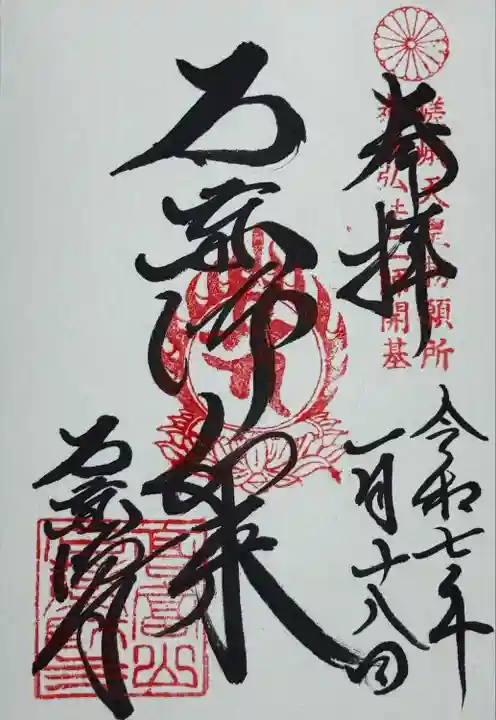 嵯峨天皇勅願所
弘法大師開基
奉拝
令和七年
一月十八日
石薬師如来
石薬師寺
高富山